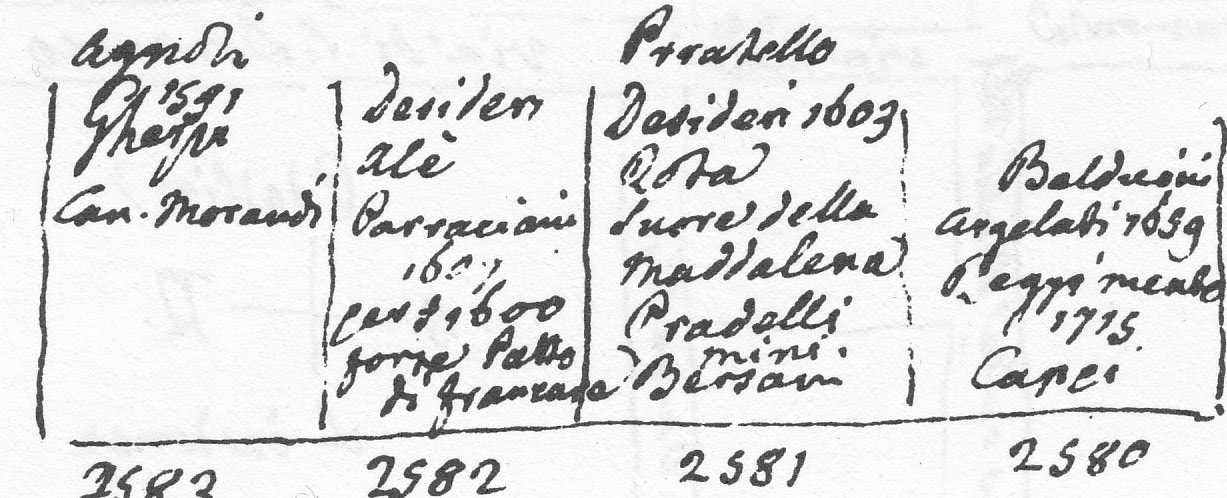 Agnoli
1591
Can. Morandi
2583
Desideri
Alè
Parraciani
1600
forse Patto
di francare
2582
Prratello
Desideri 1603
Rota
Suore della
Maddalena
Pradelli
mini.
Bersani
2581
Balduini
Argelati 1659
Reggimento
1715
Canci
2580